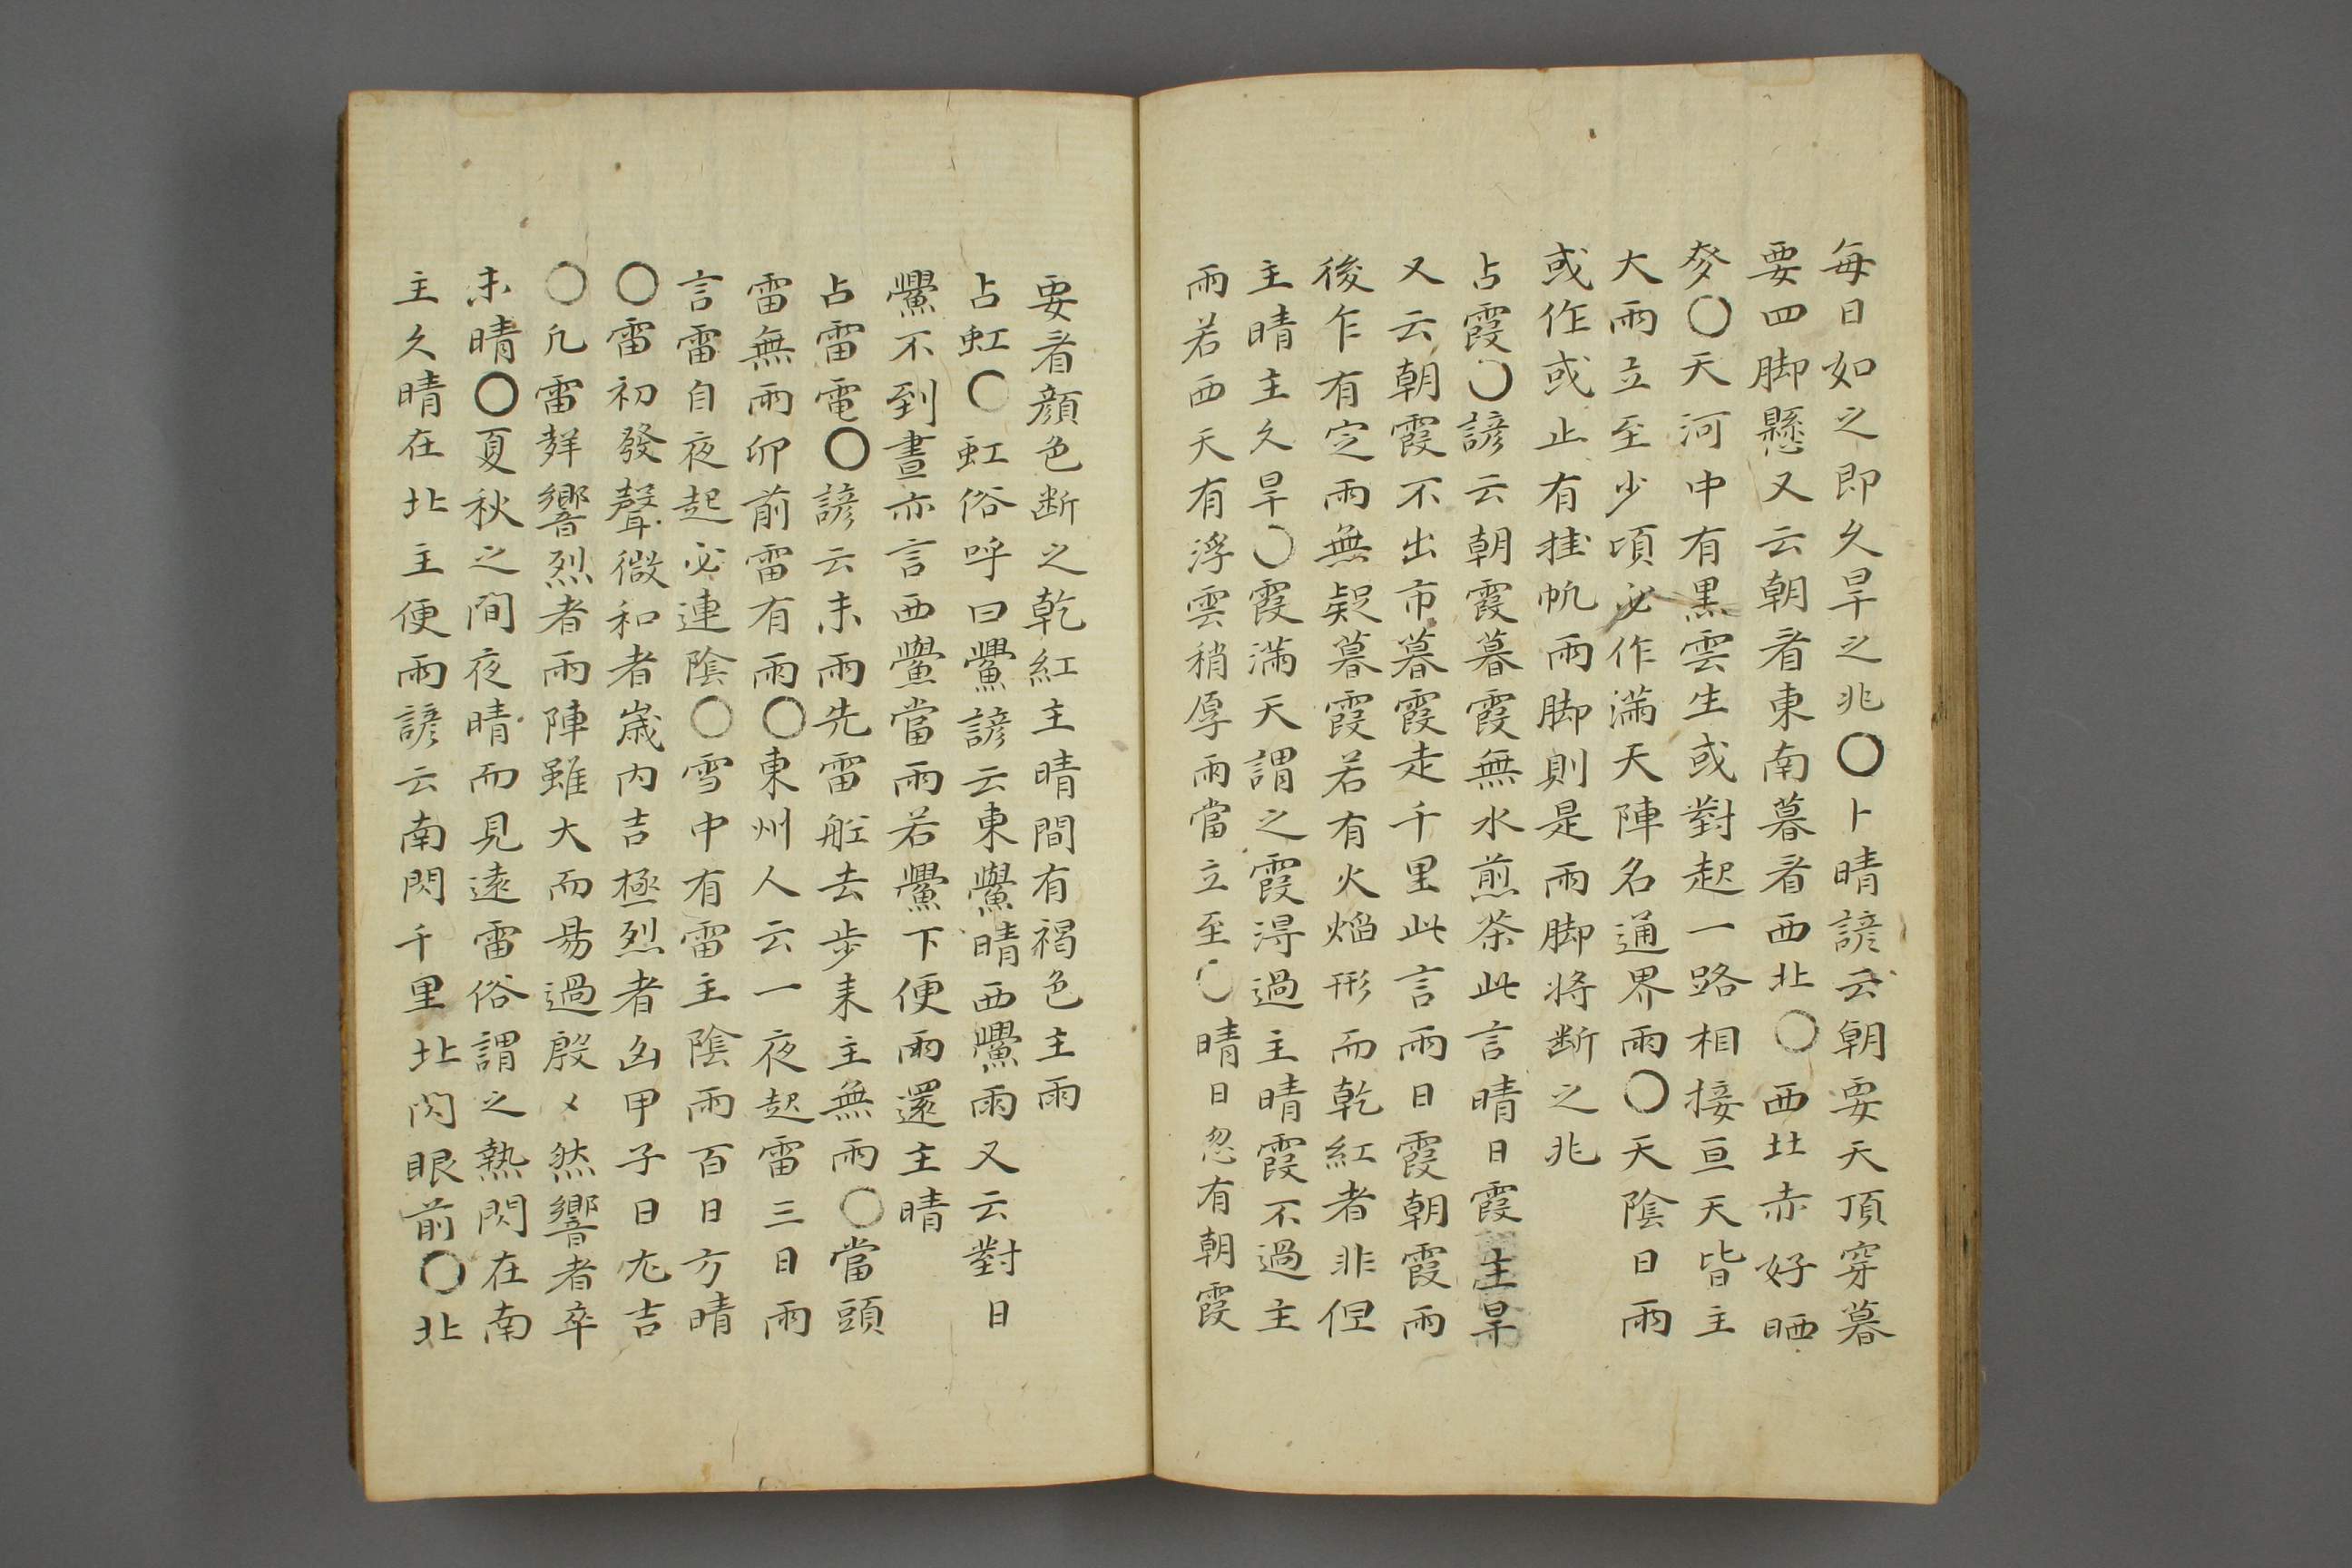 每日如之即久旱之兆〇卜晴諺云朝要天頂穿暮
要四脚懸又云朝看東南暮看西北〇西北赤好晒
麥〇天河中有黒雲生或對起一路相接亘天皆主
大雨立至少頃必作滿天陣名通界雨〇天陰日雨
或作或止有挂帆雨脚則是雨脚将断之兆
占霞〇諺云朝霞暮霞無水煎茶此言晴日霞主旱
又云朝霞不出市暮霞走千里此言雨日霞朝霞雨
後乍有定雨無疑暮霞若有火焰形而乾紅者非但
主晴主久旱〇霞滿天謂之霞淂過主晴霞不過主
雨若西天有浮雲稍厚雨當立至〇晴日忽有朝霞
要看顔色断之乾紅主晴間有褐色主雨
占虹〇虹俗呼曰鱟諺云東鱟晴西鱟雨又云對日
鱟不到晝亦言西鱟當雨若鱟下便雨還主晴
占雷電〇諺云未雨先雷舡去步来主無雨〇當頭
雷無雨卯前雷有雨〇東州人云一夜起雷三日雨
言雷自夜起必連陰〇雪中有雷主陰雨百日方晴
〇雷初發聲微和者歳内吉極烈者凶甲子日尤吉
〇凢雷聲響烈者雨陣雖大而易過殷〻然響者卒
未晴〇夏秋之間夜晴而見遠雷俗謂之熱閃在南
主久晴在北主便雨諺云南閃千里北閃眼前〇北